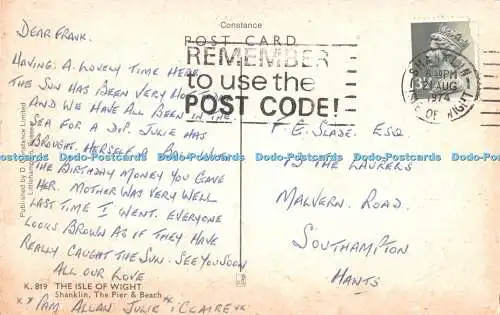 Constance
POST CARD
REMEMBER
to use the
POST CODE!
SHANKLIN
PM
21 AUG
1974
ISLE OF WIGHT
DEAR FRANK.
HAVING A LOVELY TIME HERE
THE SUN HAS BEEN VERY HOT
AND WE HAVE ALL BEEN IN THE
SEA FOR A DIP. JULIE HAS
BROUGHT HERSELF A WITH
THE BIRTHDAY MONEY YOU GAVE
HER. MOTHER WAS VERY WELL
LAST TIME I WENT. EVERYONE
LOOKS BROWN AS IF THEY HAVE
REALLY CAUGHT THE SUN. SEE YOU SOON
ALL OUR LOVE
PAM ALLAN JULIE & CLAIRE xx
F E. SLADE. ESQ.
THE LAURELS
MALVERN. ROAD.
SOUTHAMPTON
HANTS
Published by D. Constance Limited
Littlehampton, Sussex
K. 819 THE ISLE OF WIGHT
Shanklin, The Pier & Beach
Dodo-Postcards Dodo-Postcards Dodo-Postcards Dodo-Postcards Dodo-Postcards